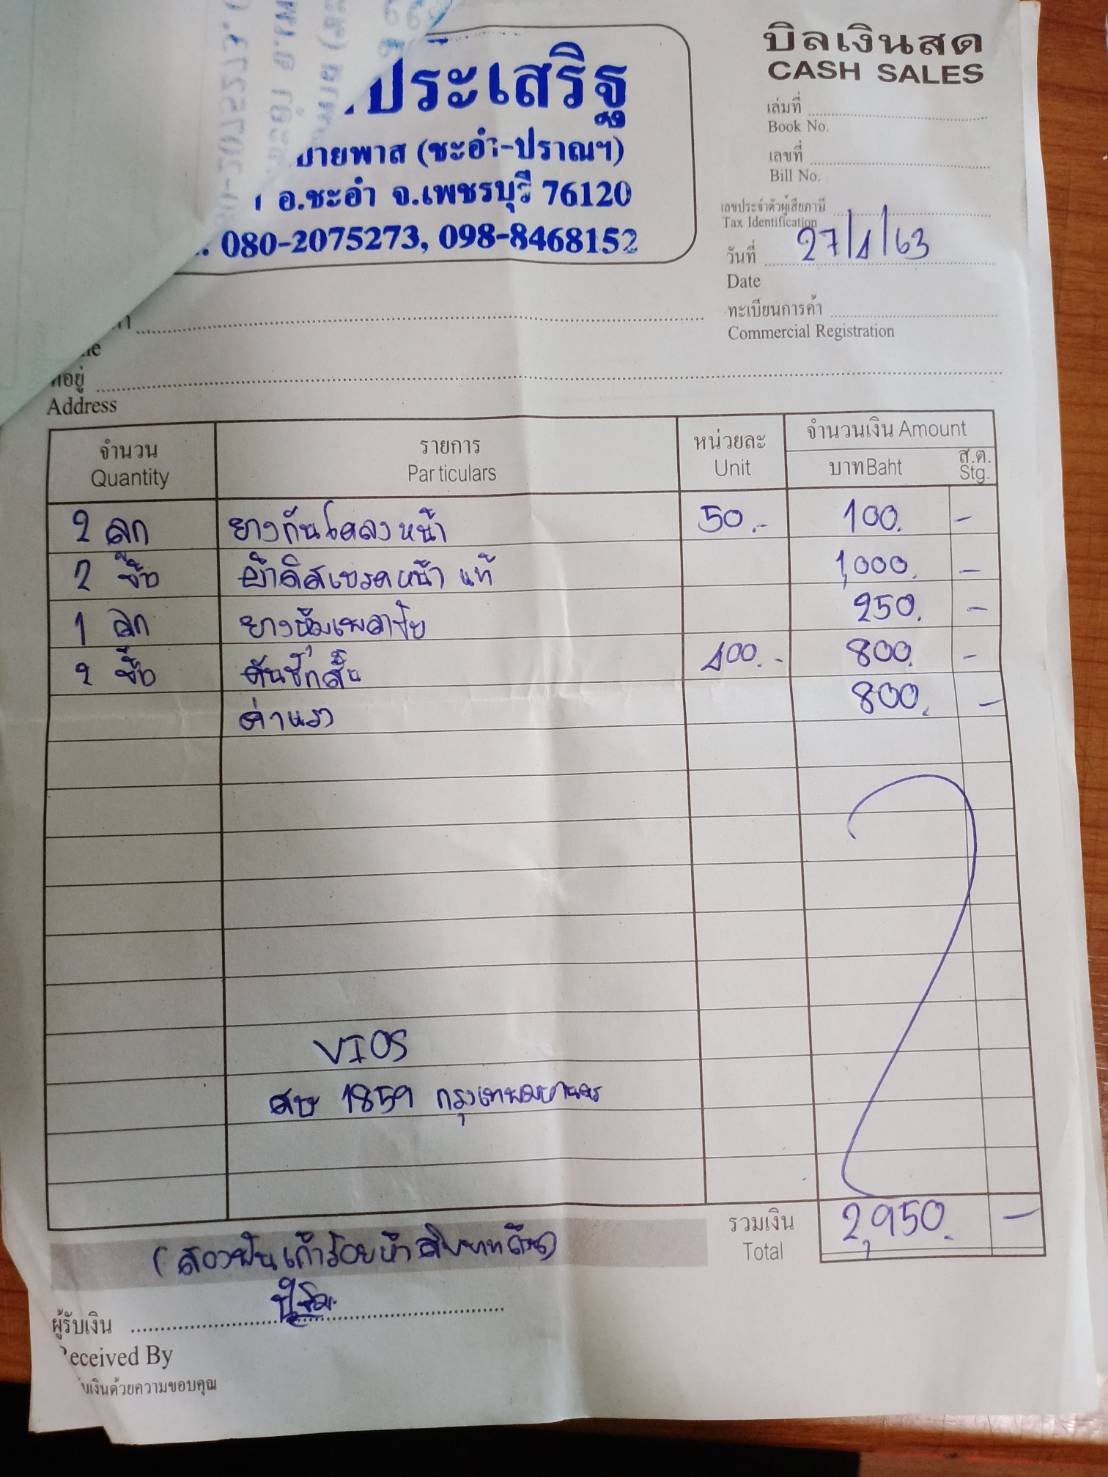 ประเสริฐ
บายพาส (ชะอำ-ปราณฯ)
อ.ชะอำ จ.เพชรบุรี 76120
080-2075273, 098-8468152
บิลเงินสด
CASH SALES
เล่มที่
Book No.
เลขที่
Bill No.
เลขประจำตัวผู้เสียภาษี
Tax Identification
วันที่ 27/1/63
Date
ทะเบียนการค้า
Commercial Registration
ที่อยู่
Address
จำนวน รายการ หน่วยละ จำนวนเงิน Amount
Quantity Particulars Unit บาท Baht ส.ต. Stg.
2 ลูก ยางกันโคลงหน้า 50.- 100. -
2 ชิ้น ผ้าดิสเบรคหน้า แท้ 1,000. -
1 ลูก ยางหุ้มเพลาขับ 250. -
2 ชิ้น คันชักสั้น 400.- 800. -
ค่าแรง 800. -
VIOS
1859 กรุงเทพมหานคร
รวมเงิน 2,950. -
Total
(สองพันเก้าร้อยห้าสิบบาทถ้วน)
ผู้รับเงิน
Received By
รับเงินด้วยความขอบคุณ